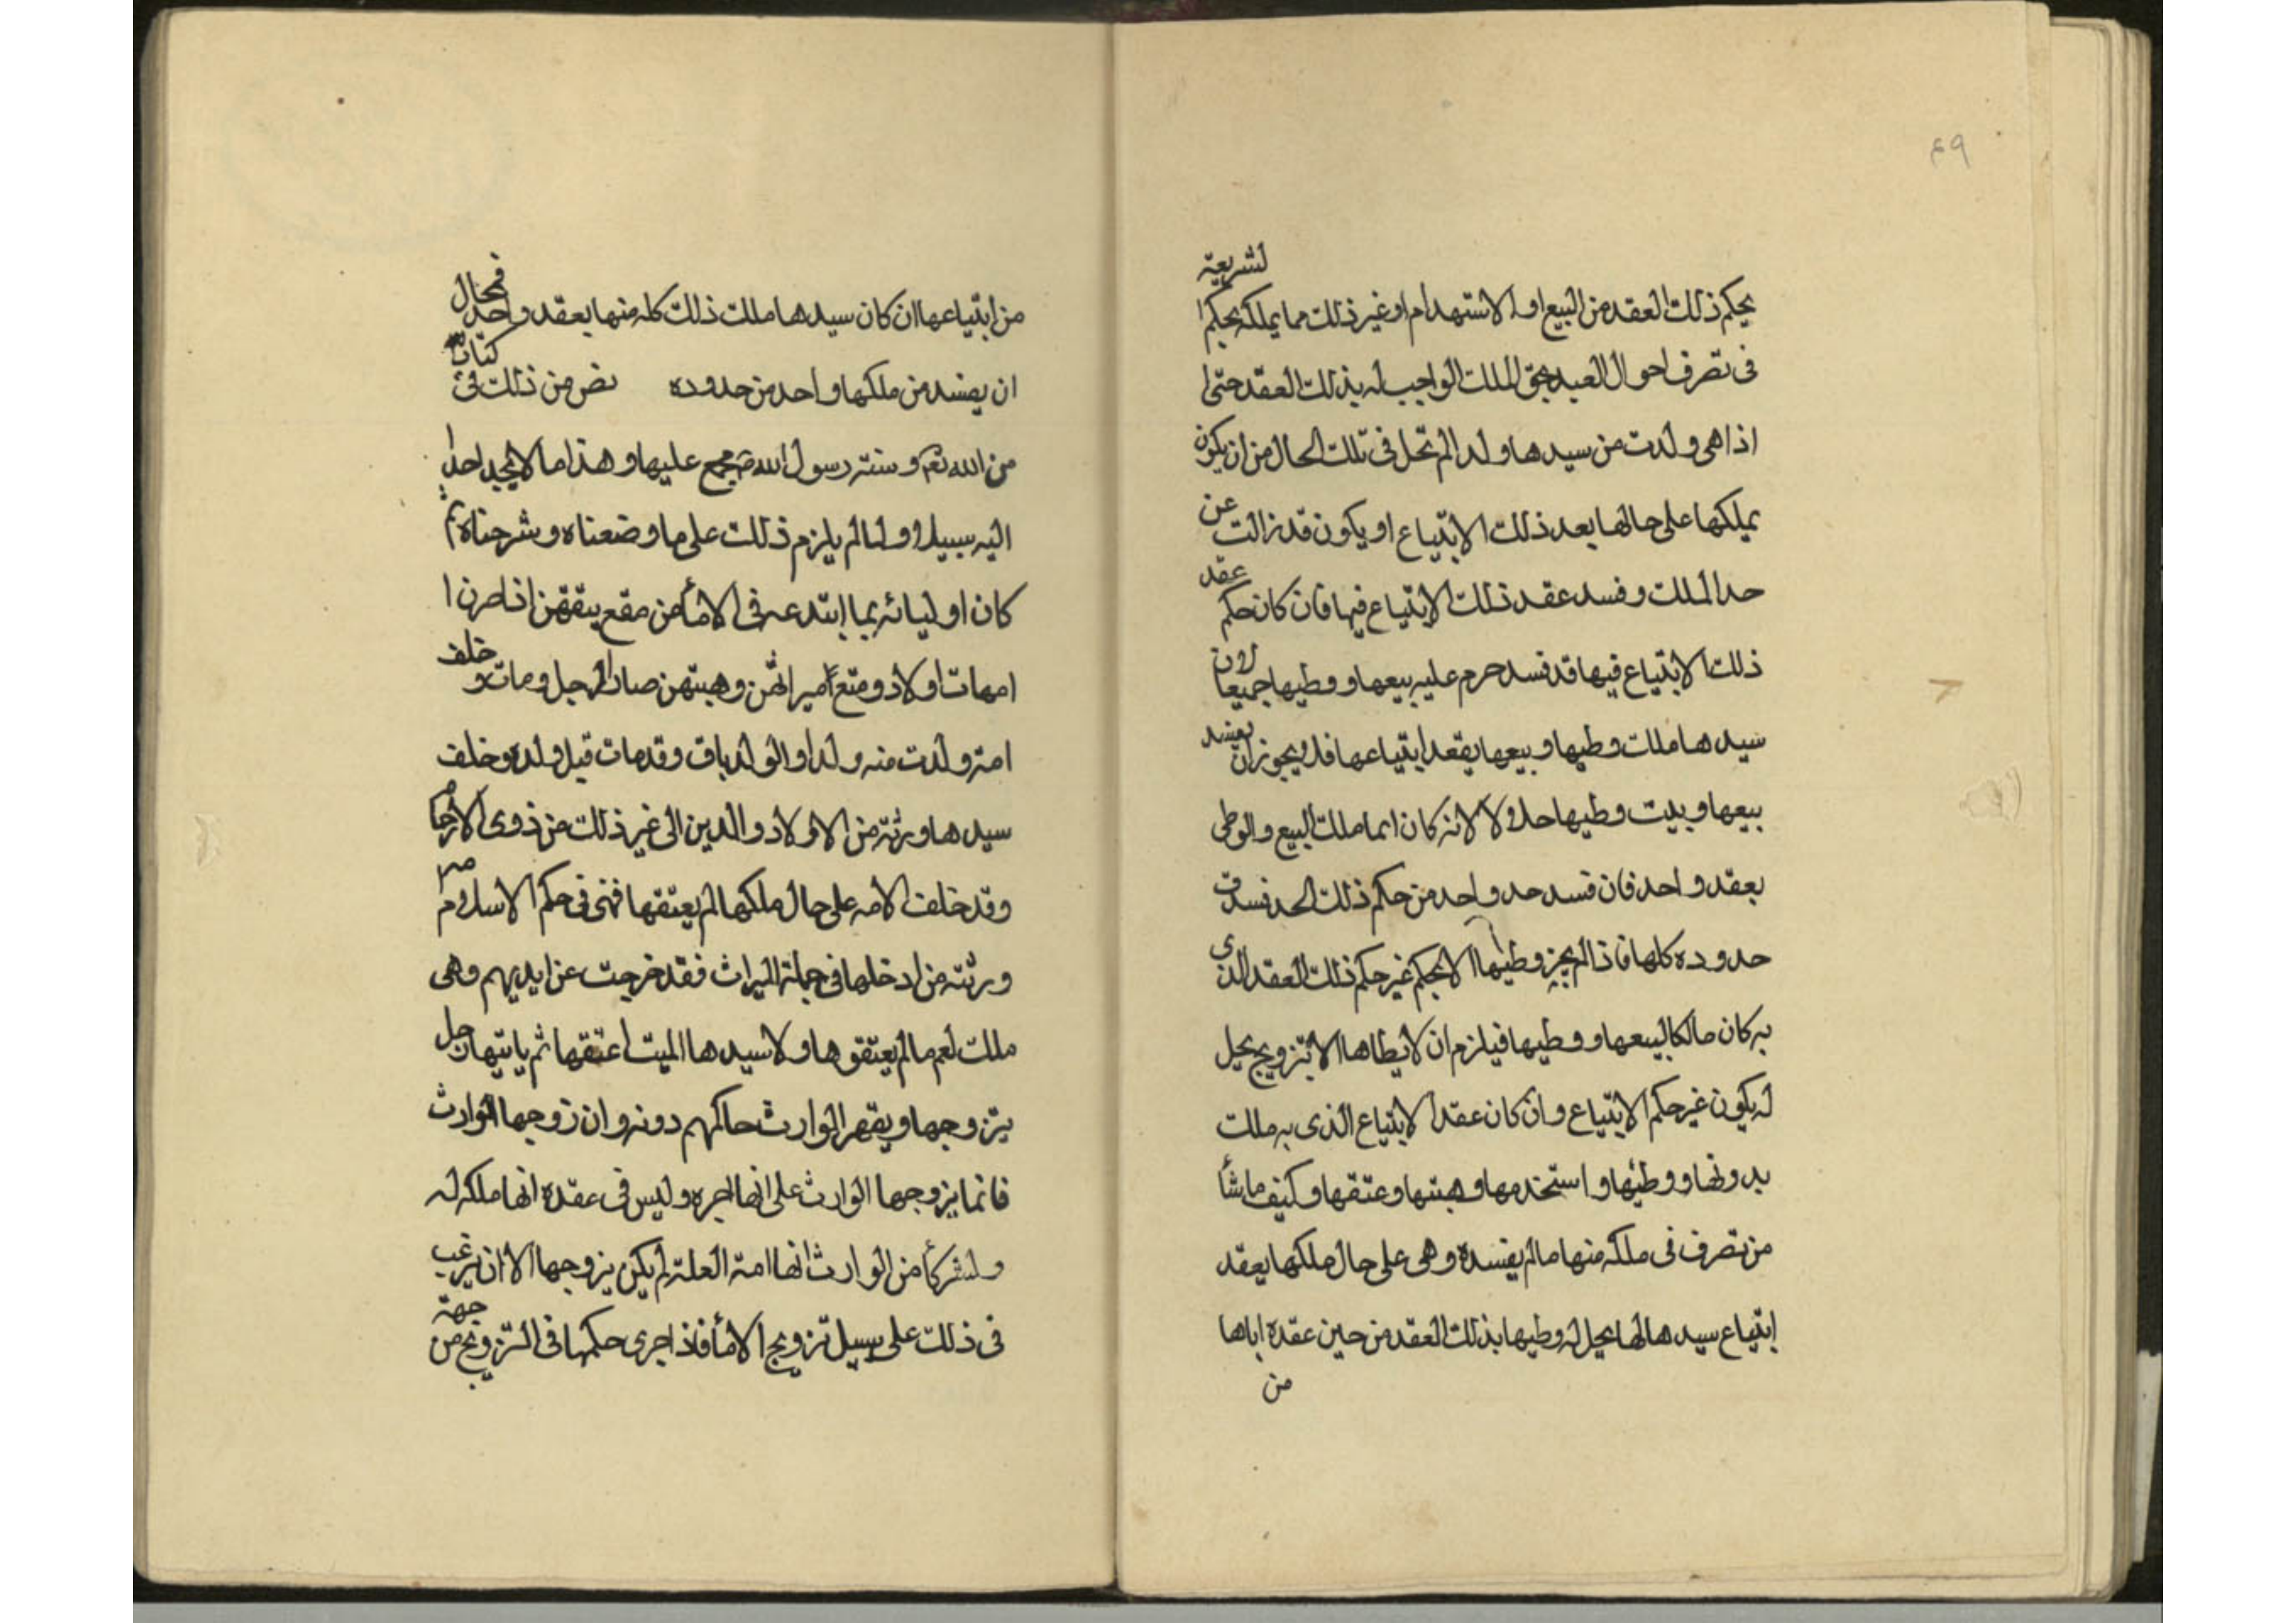 ٤٩
بحكم ذلك العقد من البيع او الاستهدام او غير ذلك مما يملكه بحكم الشريعة
فى تصرف احوال العبيد بحق الملك الواجب له بذلك العقد حتى
اذا هى ولدت من سيدها ولدا لم تخل فى تلك الحال من ان يكون
يملكها على حالها بعد ذلك الابتياع او يكون قد زالت عن
حد الملك وفسد عقد ذلك الابتياع فيها فان كان حكم عقد
ذلك الابتياع فيها قد فسد حرم عليه بيعها ووطيها جميعا لان
سيدها ملك وطيها وبيعها بعقد ابتياعها فلا يجوز ان يفسد
بيعها ويثبت وطيها حلالا لانه كان انما ملك البيع والوطى
بعقد واحد فان فسد حد واحد من حكم ذلك الحد فسدت
حدوده كلها فاذا لم يجز وطيها الا بحكم غير حكم ذلك العقد الذى
به كان مالكا لبيعها ووطيها فيلزم ان لا يطاها الا بتزويج يحل
له يكون غير حكم الابتياع وان كان عقد الابتياع الذى به ملك
بدونها ووطئها واستخدمها وهبتها وعتقها وكيف ما شأ
من تصرف فى ملكه منها ما لم يفسده وهى على حال ملكها بعقد
ابتياع سيدها لها يحل له وطيها بذلك العقد من حين عقده اياها
من
من ابتياعها ان كان سيدها ملك ذلك كله منها بعقد واحد فمحال
ان يفسد من ملكها واحد من حدوده نص من ذلك فى كتاب
من الله تعم وسنته رسول الله ص مجمع عليها وهذا ما لا يجد احد
اليه سبيلا ولما لم يلزم ذلك على ما وضعناه وشرحناه ثم
كان اوليائه بما ابتدعه فى الامأ من مقع بيعهن اذا صرن ا
امهات اولاد ومنع ميراثهن وهبتهن صار الرجل ومات وخلف
امته ولدت منه ولدا والولد باق وقد مات قبل ولده وخلف
سيدها ورثته من الاولاد والدين الى غير ذلك من ذوى الارحام
وقد خلف الامه على حال ملكها لم يعتقها فهى فى حكم الاسلام
ورثته من ادخلها فى جملة الميراث فقد خرجت عن ايديهم وهى
ملك لهم ما لم يعتقوها ولا سيدها الميت اعتقها ثم ياتيها رجل
يتزوجها ويقهر الوارث حاكمهم دونه وان زوجها الوارث
فانما يزوجها الوارث على انها اجره وليس فى عقده انها ملكه له
ولشركأ من الوارث انها امة العلة لم يكن يزوجها الا ان يرغب
فى ذلك على سبيل تزويج الامأ فاذ اجرى حكمها فى التزويج من جهة